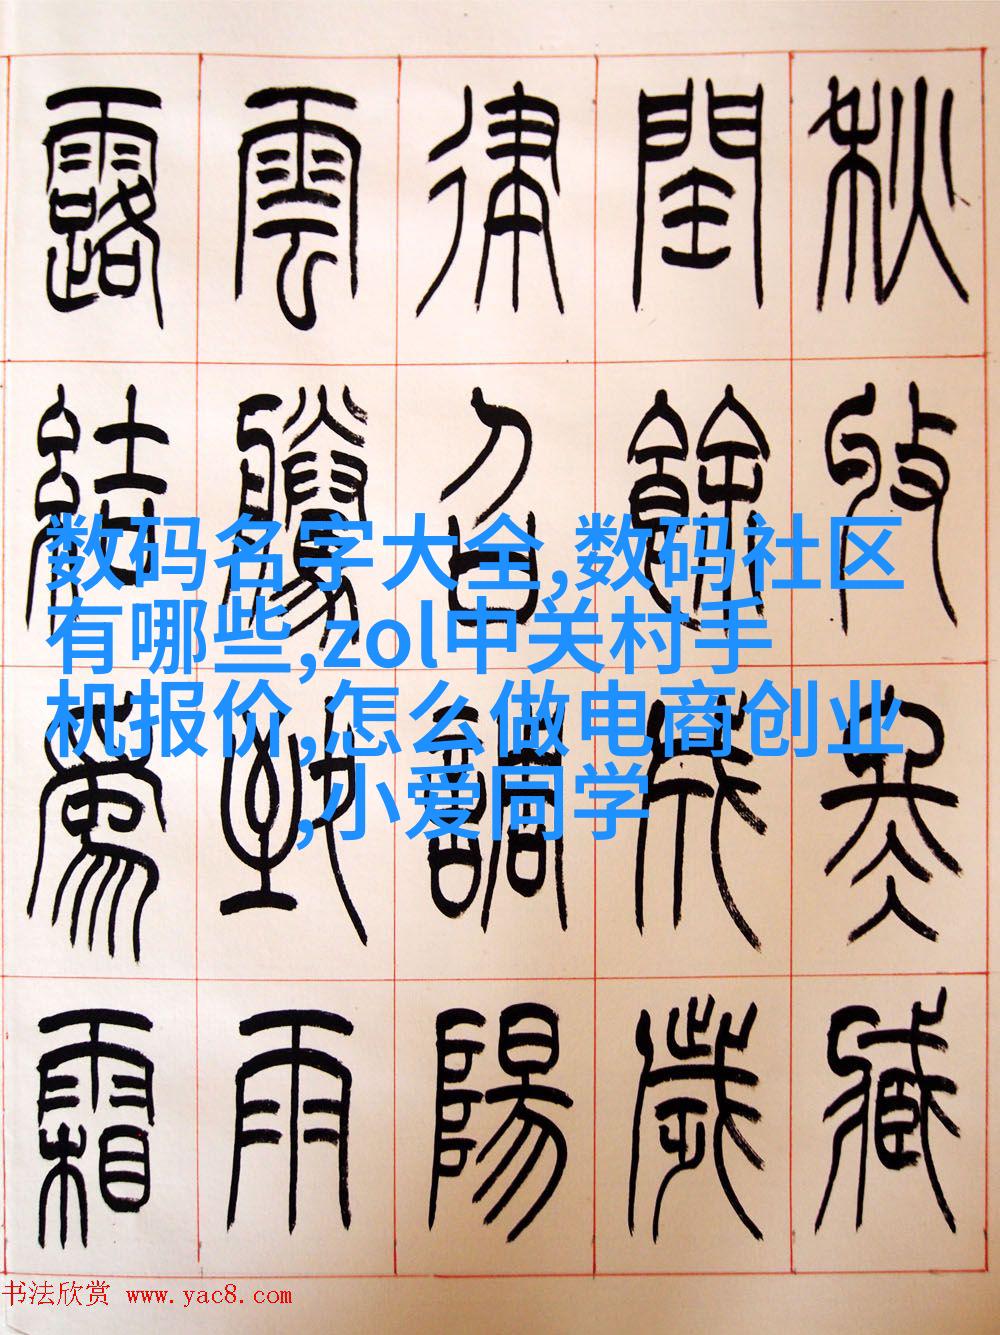 秋收冬藏
閏餘成歲
律召調陽
雲騰致雨
露結爲霜
数码名字大全,数码社区
有哪些,zol中关村手
机报价,怎么做电商创业
,小爱同学
书法欣赏 www.yac8.com